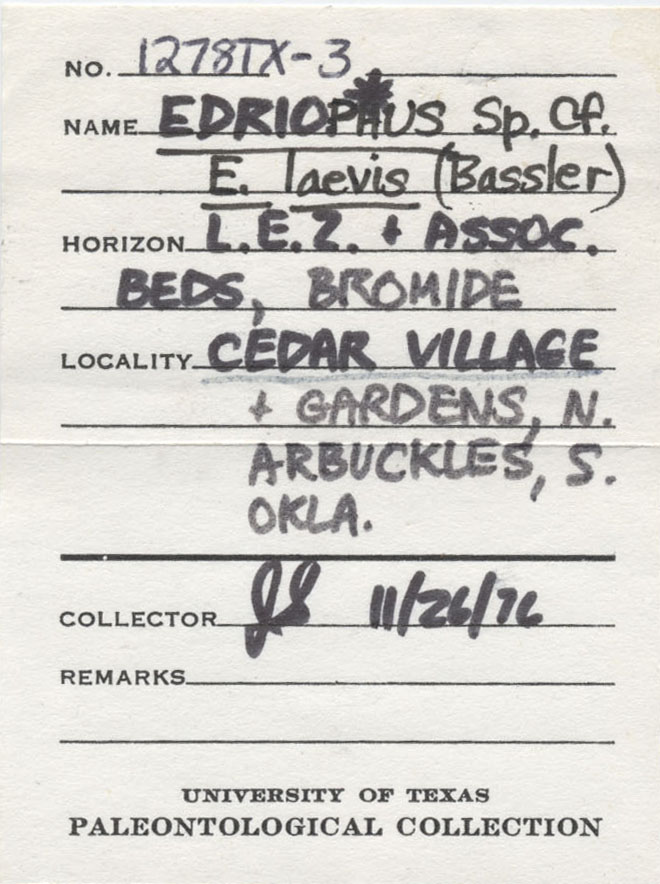 NO. 1278TX-3
NAME EDRIOPHUS Sp. Cf.
E. laevis (Bassler)
HORIZON L.E.Z. + ASSOC.
BEDS, BROMIDE
LOCALITY CEDAR VILLAGE
+ GARDENS, N.
ARBUCKLES, S.
OKLA.
COLLECTOR 11/26/76
REMARKS
UNIVERSITY OF TEXAS
PALEONTOLOGICAL COLLECTION